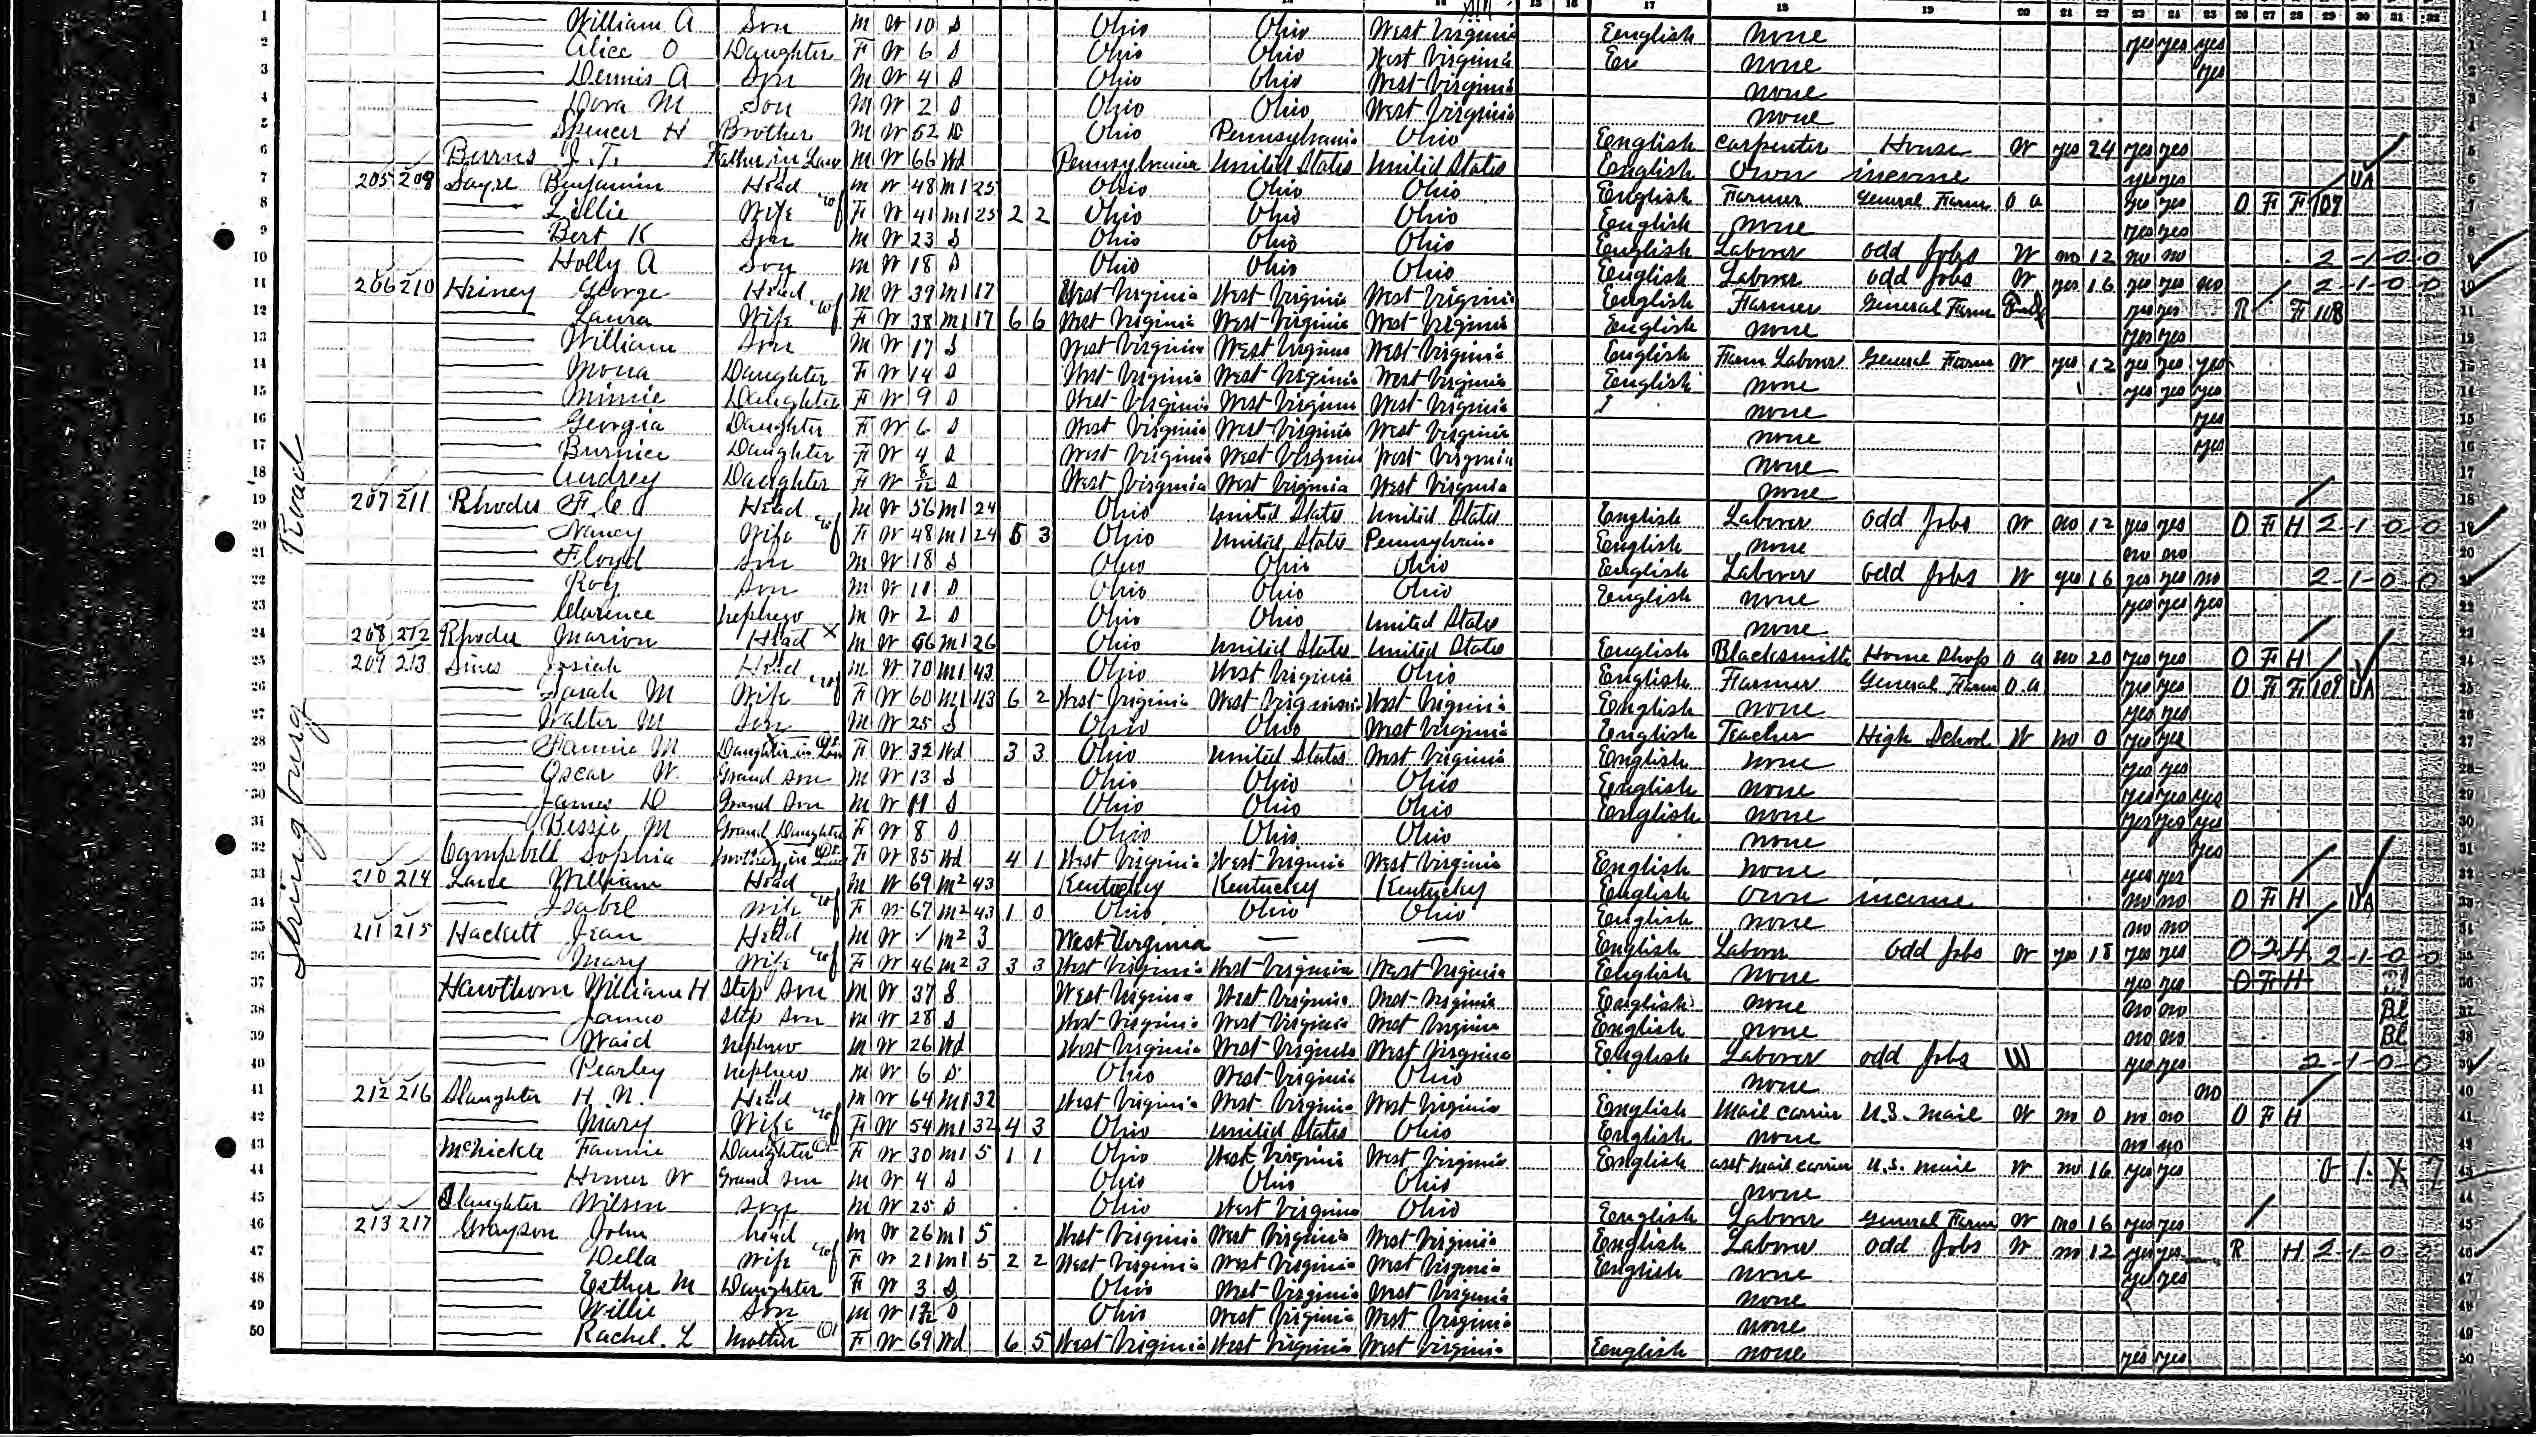 17 18 19 20 21 22 23 24 25 26 27 28 29 30 31 32
1 William A Son M W 10 S Ohio Ohio West Virginia English none yes yes yes
2 Alice O Daughter F W 6 S Ohio Ohio West Virginia En none yes
3 Dennis A Son M W 4 S Ohio Ohio West Virginia none
4 Dora M Son M W 2 S Ohio Ohio West Virginia none
5 Spencer H Brother M W 52 D Ohio Pennsylvania Ohio English Carpenter House W yes 24 yes yes
6 Burns J. T. Father in Law M W 66 Wd Pennsylvania United States United States English Own income yes yes UA
7 205 209 Sayre Benjamin Head M W 48 M1 25 Ohio Ohio Ohio English Farmer General Farm O A yes yes O F F 107
8 Lillie Wife F W 41 M1 25 2 2 Ohio Ohio Ohio English none yes yes
9 Bert K Son M W 23 S Ohio Ohio Ohio English Laborer odd Jobs W no 12 no no 2-1-0-0
10 Holly A Son M W 18 S Ohio Ohio Ohio English Laborer odd Jobs W yes 16 yes yes no 2-1-0-0
11 206 210 Hiney George Head M W 39 M1 17 West Virginia West Virginia West Virginia English Farmer General Farm yes yes R F 108
12 Laura Wife F W 38 M1 17 6 6 West Virginia West Virginia West Virginia English none yes yes
13 William Son M W 17 S West Virginia West Virginia West Virginia English Farm Laborer General Farm W yes 12 yes yes yes
14 Mona Daughter F W 14 S West Virginia West Virginia West Virginia English none yes yes yes
15 Minnie Daughter F W 9 S West Virginia West Virginia West Virginia none yes
16 Georgia Daughter F W 6 S West Virginia West Virginia West Virginia none yes
17 Burnice Daughter F W 4 S West Virginia West Virginia West Virginia none
18 Audrey Daughter F W 8/12 S West Virginia West Virginia West Virginia none
19 207 211 Rhodes F. C. Head M W 56 M1 24 Ohio United States United States English Laborer odd Jobs W no 12 yes yes O F H 2-1-0-0
20 Nancy Wife F W 48 M1 24 5 3 Ohio United States Pennsylvania English none no no
21 Floyd Son M W 18 S Ohio Ohio Ohio English Laborer odd Jobs W yes 16 yes yes no 2-1-0-0
22 Roy Son M W 11 S Ohio Ohio Ohio English none yes yes yes
23 Clarence nephew M W 2 S Ohio Ohio United States none
24 208 212 Rhodes Marion Head X M W 56 M1 26 Ohio United States United States English Blacksmith Home Shop O A no 20 yes yes O F H
25 209 213 Sines Josiah Head M W 70 M1 43 Ohio West Virginia Ohio English Farmer General Farm O A yes yes O F F 109 UA
26 Sarah M Wife F W 60 M1 43 6 2 West Virginia West Virginia West Virginia English none yes yes
27 Walter M Son M W 25 S Ohio Ohio West Virginia English Teacher High School W no 0 yes yes
28 Fannie M Daughter in Law F W 32 Wd 3 3 Ohio United States West Virginia English none yes yes
29 Oscar W. Grand son M W 13 S Ohio Ohio Ohio English none yes yes yes
30 James D Grand Son M W 11 S Ohio Ohio Ohio English none yes yes yes
31 Bessie M Grand Daughter F W 8 S Ohio Ohio Ohio none yes
32 Campbell Sophia mother in Law F W 85 Wd 4 1 West Virginia West Virginia West Virginia English none yes yes
33 210 214 Lane William Head M W 69 M2 43 Kentucky Kentucky Kentucky English own income no no O F H UA
34 Isabel Wife F W 67 M2 43 1 0 Ohio Ohio Ohio English none no no
35 211 215 Hackett Jean Head M W ✓ M2 3 West Virginia — — English Laborer odd Jobs W yes 18 yes yes 2-1-0-0
36 Mary Wife F W 46 M2 3 3 3 West Virginia West Virginia West Virginia English none yes yes O F H
37 Hawthorn William H Step Son M W 37 S West Virginia West Virginia West Virginia English none no no Bl
38 James Step Son M W 28 S West Virginia West Virginia West Virginia English none no no Bl
39 Waid nephew M W 26 Wd West Virginia West Virginia West Virginia English Laborer odd Jobs W yes yes 2-1-0-0
40 Pearley nephew M W 6 S Ohio West Virginia Ohio none no
41 212 216 Slaughter H. N. Head M W 64 M1 32 West Virginia West Virginia West Virginia English Mail carrier U.S. Mail W no 0 no no O F H
42 Mary Wife F W 54 M1 32 4 3 Ohio United States Ohio English none no no
43 McNickle Fannie Daughter F W 30 M1 5 1 1 Ohio West Virginia West Virginia English asst mail carrier U.S. mail W no 16 yes yes
44 Homer W Grand Son M W 4 S Ohio Ohio Ohio none
45 Slaughter Wilson Son M W 25 S Ohio West Virginia Ohio English Laborer General Farm W no 16 yes yes
46 213 217 Grayson John head M W 26 M1 5 West Virginia West Virginia West Virginia English Laborer odd Jobs W no 12 yes yes R H 2-1-0
47 Della Wife F W 21 M1 5 2 2 West Virginia West Virginia West Virginia English none yes yes
48 Esther M Daughter F W 3 S Ohio West Virginia West Virginia none
49 Willie Son M W S Ohio West Virginia West Virginia none
50 Rachel. L Mother F W 69 Wd 6 5 West Virginia West Virginia West Virginia English none yes yes
Road